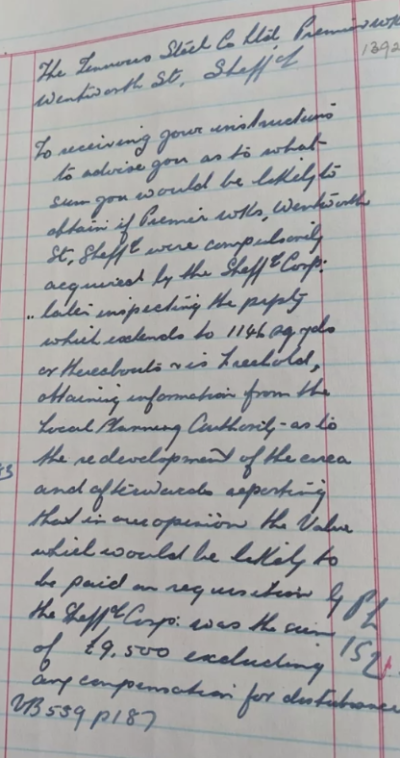 The Tenuous Steel Co Ltd. Premier Wks
1392
Wentworth St, Sheffd
To receiving your instructions
to advise you as to what
sum you would be likely to
obtain if Premier Wks, Wentworth
St, Sheffd were compulsorily
acquired by the Sheffd Corp:
.. later inspecting the ppty
which extends to 1146 sq yds
or thereabouts & is freehold,
obtaining information from the
Local Planning Authority - as to
the redevelopment of the area
and afterwards reporting
that in our opinion the Value
which would be likely to
be paid on requisition by
the Sheffd Corp: was the sum
of £9,500 excluding
any compensation for disturbance
VB 559 p187